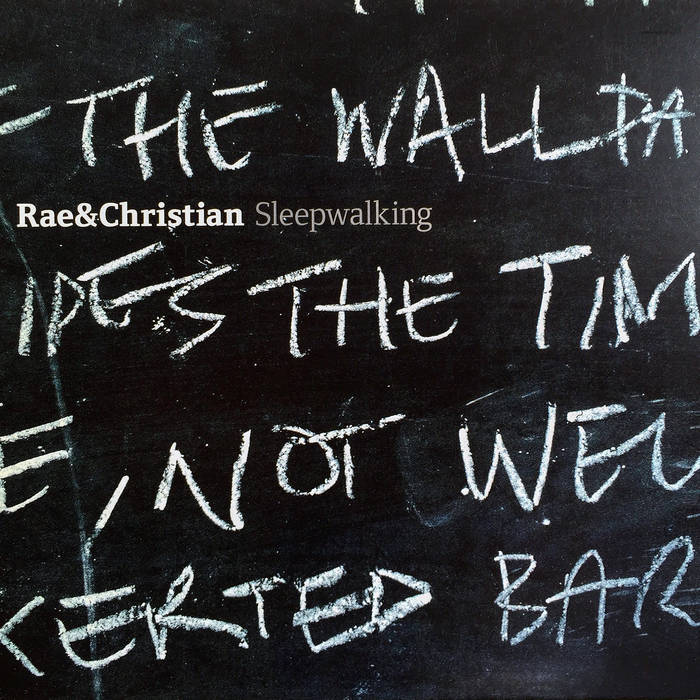 THE WALLPA
Rae&Christian Sleepwalking
IPES THE TIM
E, NOT WEL
CERTED BAR